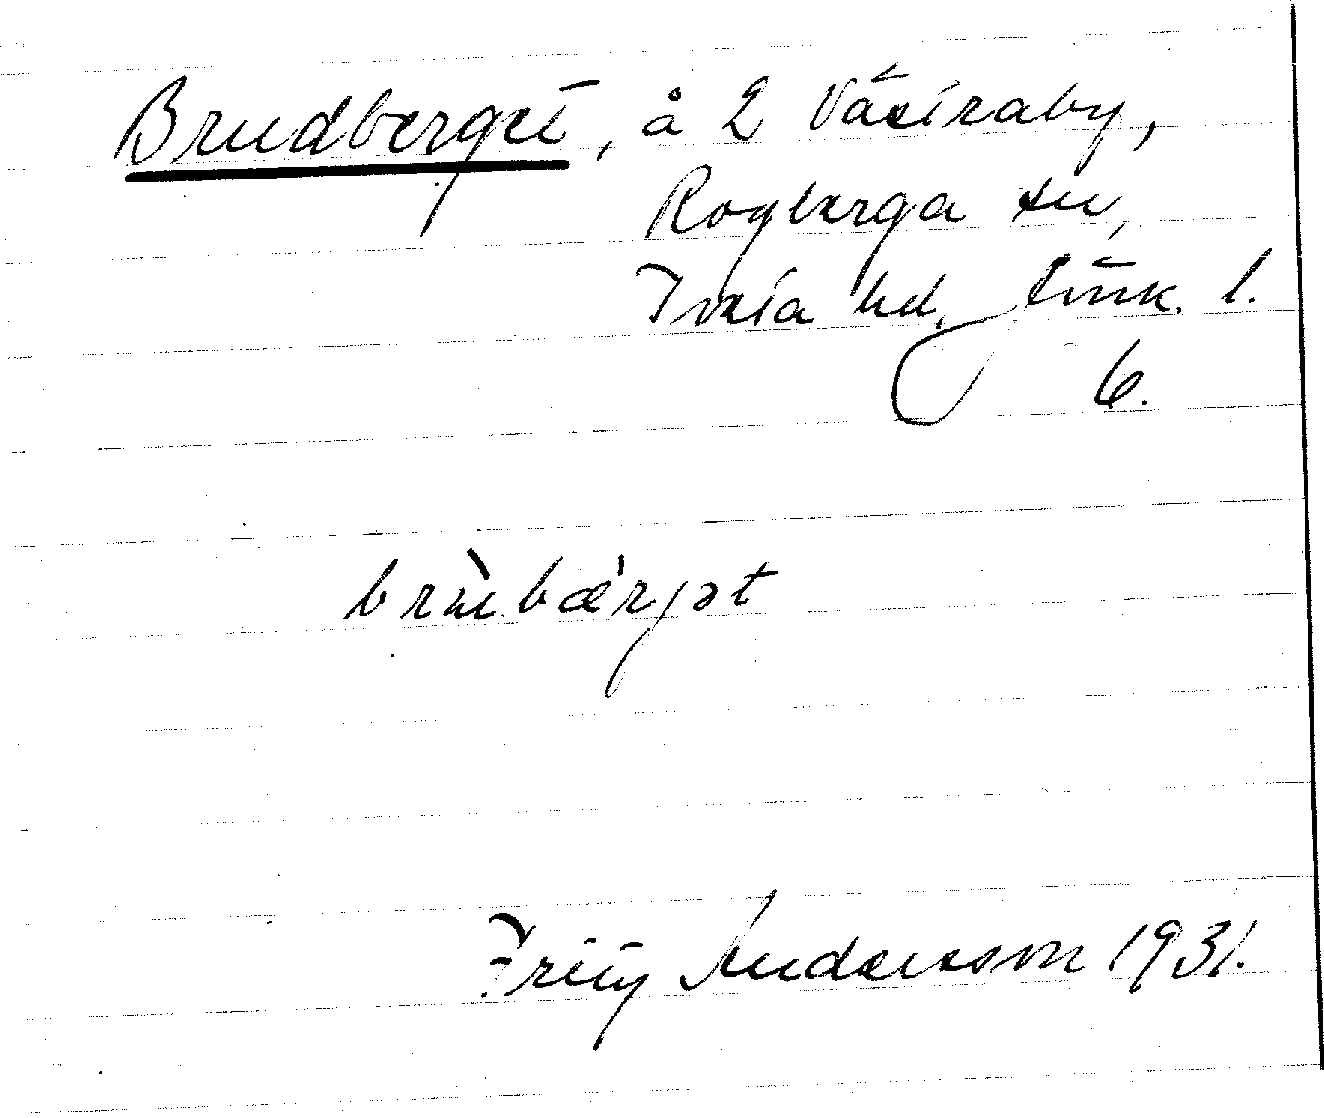 Brudberget, å 2 Västraby,
Rogberga sn,
Tveta hd, Jönk. l.
6.
brùbærjət
Fritz Andersson 1931.